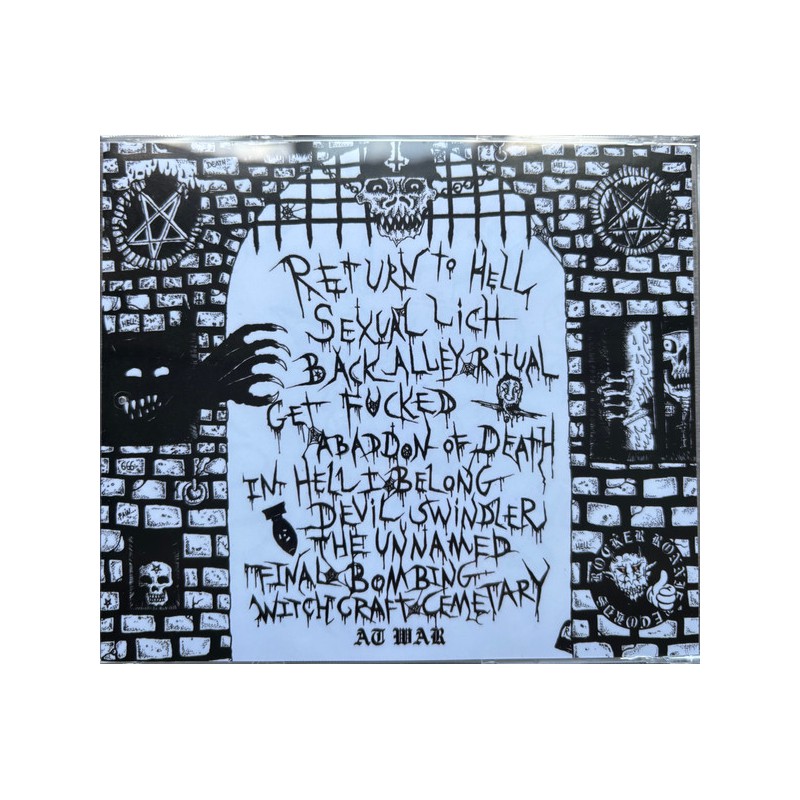 DEATH
HELL
RETURN TO HELL
SEXUAL LICH
BACK ALLEY RITUAL
GET FUCKED
ABADDON OF DEATH
IN HELL I BELONG
DEVIL SWINDLER
THE UNNAMED
FINAL BOMBING
WITCHCRAFT CEMETARY
AT WAR
666
PAIN
HELL